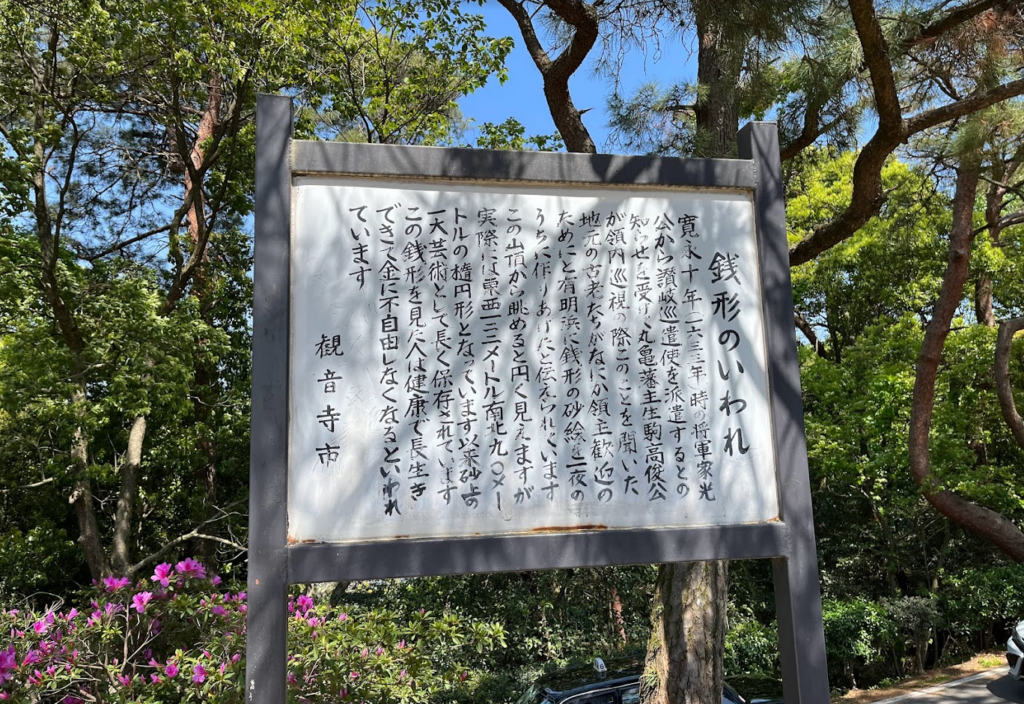 銭形のいわれ
寛永十年(一六三三年 時の将軍家光
公から讃岐巡遣使を派遣するとの
知らせを受けて丸亀藩主生駒高俊公
が領内巡視の際このことを聞いた
地元の古老たちがなにか領主歓迎の
ためにと有明浜に銭形の砂絵を一夜の
うちに作りあげたと伝えられています
この山頂から眺めると円く見えますが
実際には東西一二二メートル南北九〇メー
トルの楕円形となっています以来砂上の
一大芸術として長く保存されています
この銭形を見た人は健康で長生き
できて金に不自由しなくなるといわれ
ています
観音寺市